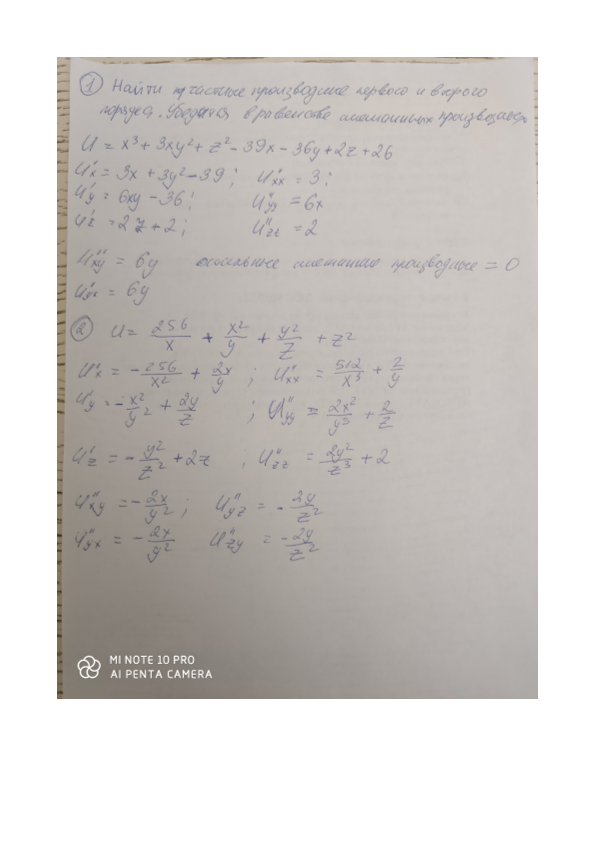 ① Найти частные производные первого и второго
порядка. Убедиться в равенстве смешанных производных
U = x³ + 3xy² + z² - 39x - 36y + 2z + 26
U'x = 3x + 3y² - 39 ; U''xx = 3 ;
U'y = 6xy - 36 ; U''yy = 6x
U'z = 2z + 2 ; U''zz = 2
U''xy = 6y остальные смешанные производные = 0
U''yx = 6y
② U = 256/x + x²/y + y²/z + z²
U'x = - 256/x² + 2x/y ; U''xx = 512/x³ + 2/y
U'y = - x²/y² + 2y/z ; U''yy = 2x²/y³ + 2/z
U'z = - y²/z² + 2z ; U''zz = 2y²/z³ + 2
U''xy = - 2x/y² ; U''yz = - 2y/z²
U''yx = - 2x/y² U''zy = - 2y/z²
MI NOTE 10 PRO
AI PENTA CAMERA